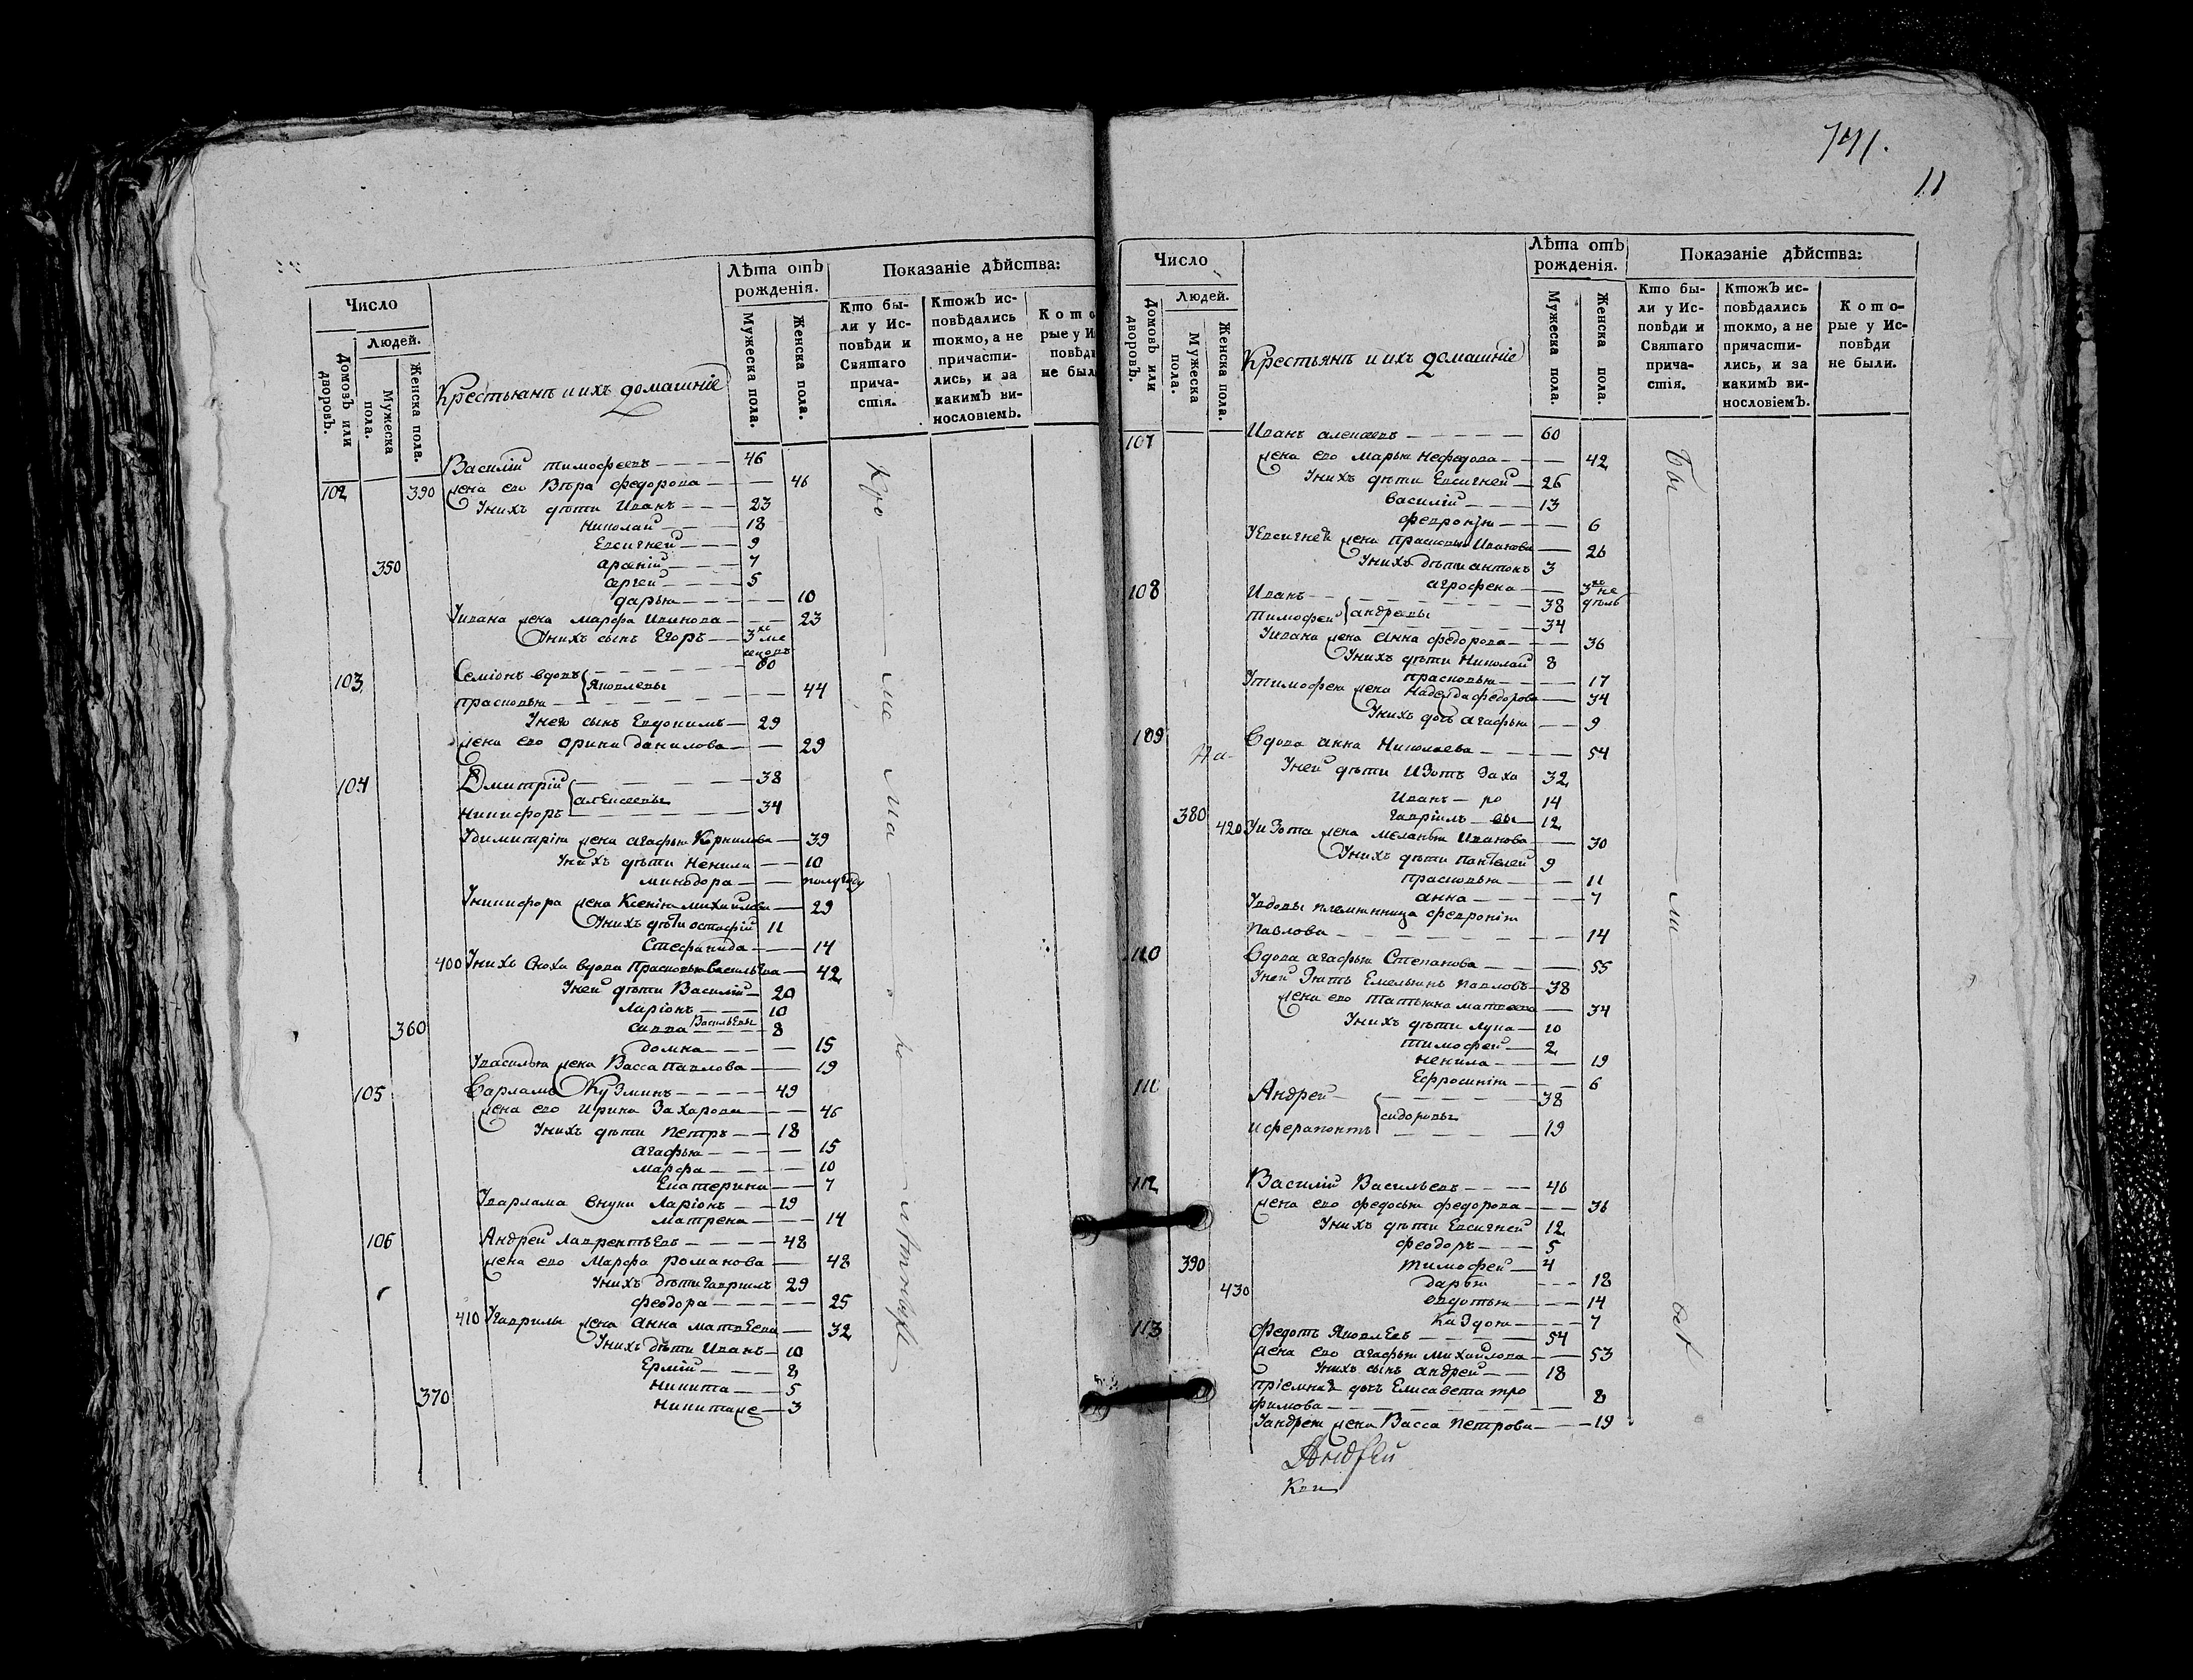 741.
11
Число
Людей.
Домовъ или дворовъ.
Мужеска пола.
Женска пола.
Крестьянъ и ихъ домашніе
Лѣта отъ рожденія.
Мужеска пола.
Женска пола.
Показаніе дѣйства:
Кто были у Исповѣди и Святаго причастія.
Ктожъ исповѣдались токмо, а не причастились, и за какимъ винословіемъ.
Василій тимофеевъ 46
102 390 жена ево Вѣра федорова 46
Унихъ дѣти Иванъ 23
Николай 18
Евсигней 9
350 арсеній 7
сергей 5
дарья 10
Уивана жена марфа Иванова 23
Унихъ сынъ Егоръ 3
103 Семіонъ вдовъ Яковлевы 60
прасковья 44
Унего сынъ Евдокимъ 29
жена ево орина данилова 29
104 Дмитрій алексеевы 38
никифоръ 34
Удимитрія жена агафья Корнилова 39
Унихъ дѣти Ненила 10
минодора полугоду
Уникифора жена Ксенія михайлова 29
Унихъ дѣти остафій 11
Стефанида 14
400 Унихъ Сноха вдова Прасковья Васильева 42
Уней дѣти Василій 20
Ларіонъ 10
360 савва Васильевы 8
домна 15
Увасилья жена Васса Павлова 19
105 Варламъ Кузминъ 49
жена ево Ирина Захарова 46
Унихъ дѣти Петръ 18
агафья 15
марфа 10
Екатерина 7
Уварлама внуки Ларіонъ 19
матрена 14
106 Андрей Лаврентьевъ 48
жена ево Марфа романова 48
Унихъ дѣти гаврилъ 29
феодора 25
410 Угаврилы жена анна матвеева 32
Унихъ дѣти Иванъ 10
Ермій 8
370 никита 5
никитаже 3
Число
Людей.
Домовъ или дворовъ.
Мужеска пола.
Женска пола.
Крестьянъ и ихъ домашніе
Лѣта отъ рожденія.
Мужеска пола.
Женска пола.
Показаніе дѣйства:
Кто были у Исповѣди и Святаго причастія.
Ктожъ исповѣдались токмо, а не причастились, и за какимъ винословіемъ.
Которые у Исповѣди не были.
107 Иванъ алексеевъ 60
жена ево марья Нефедова 42
Унихъ дѣти Евсигней 26
василій 13
февронія 6
Уевсигнея жена прасковья Иванова 26
Унихъ дѣти антонъ 3
агрофена 3 недѣль
108 Иванъ андреевы 38
тимофей 34
Уивана жена анна федорова 36
Унихъ дѣти Николай 8
прасковья 17
Утимофея жена Надежда федорова 34
Унихъ дочь агафья 9
109 Вдова анна Николаева 54
Уней дѣти Изотъ Заха 32
Иванъ ро 14
380 гавріилъ вы 12
420 Уизота жена меланья Иванова 30
Унихъ дѣти пантелей 9
прасковья 11
анна 7
Увдовы племянница февронія
павлова 14
110 Вдова агафья Степанова 55
Уней Зять Емельянъ Павловъ 38
жена ево татьяна матвеева 34
Унихъ дѣти лука 10
тимофей 2
ненила 19
Ефросинія 6
111 Андрей сидоровы 38
и ферапонтъ 19
112 Василій Васильевъ 46
жена ево федосья федорова 36
Унихъ дѣти Евсигней 12
феодоръ 5
390 тимофей 4
дарья 18
430 евдотья 14
7
113 Федотъ Яковлевъ 54
жена ево агафья михайлова 53
Унихъ сынъ андрей 18
пріемная дочь Елисавета тро
фимова 8
Уандрея жена Васса петрова 19
Андрей